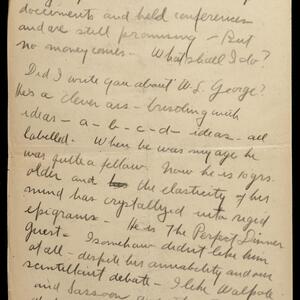 documents and held conferences
and are still promising – But
no money comes – What shall I do?
Did I write you about W. L. George?
He's a clever ass – bristling with
ideas – a – b – c – d – ideas – all
labelled. When he was my age he
was quite a fellow. Now he is 10 yrs.
older and the elasticity of his
mind has crystallyzed into
epigrams – He is the Perfect Dinner
Guest – I somehow didn't like him
at all – despite his amiability and our
scintillant debate – I like Walpole
and Sassoon